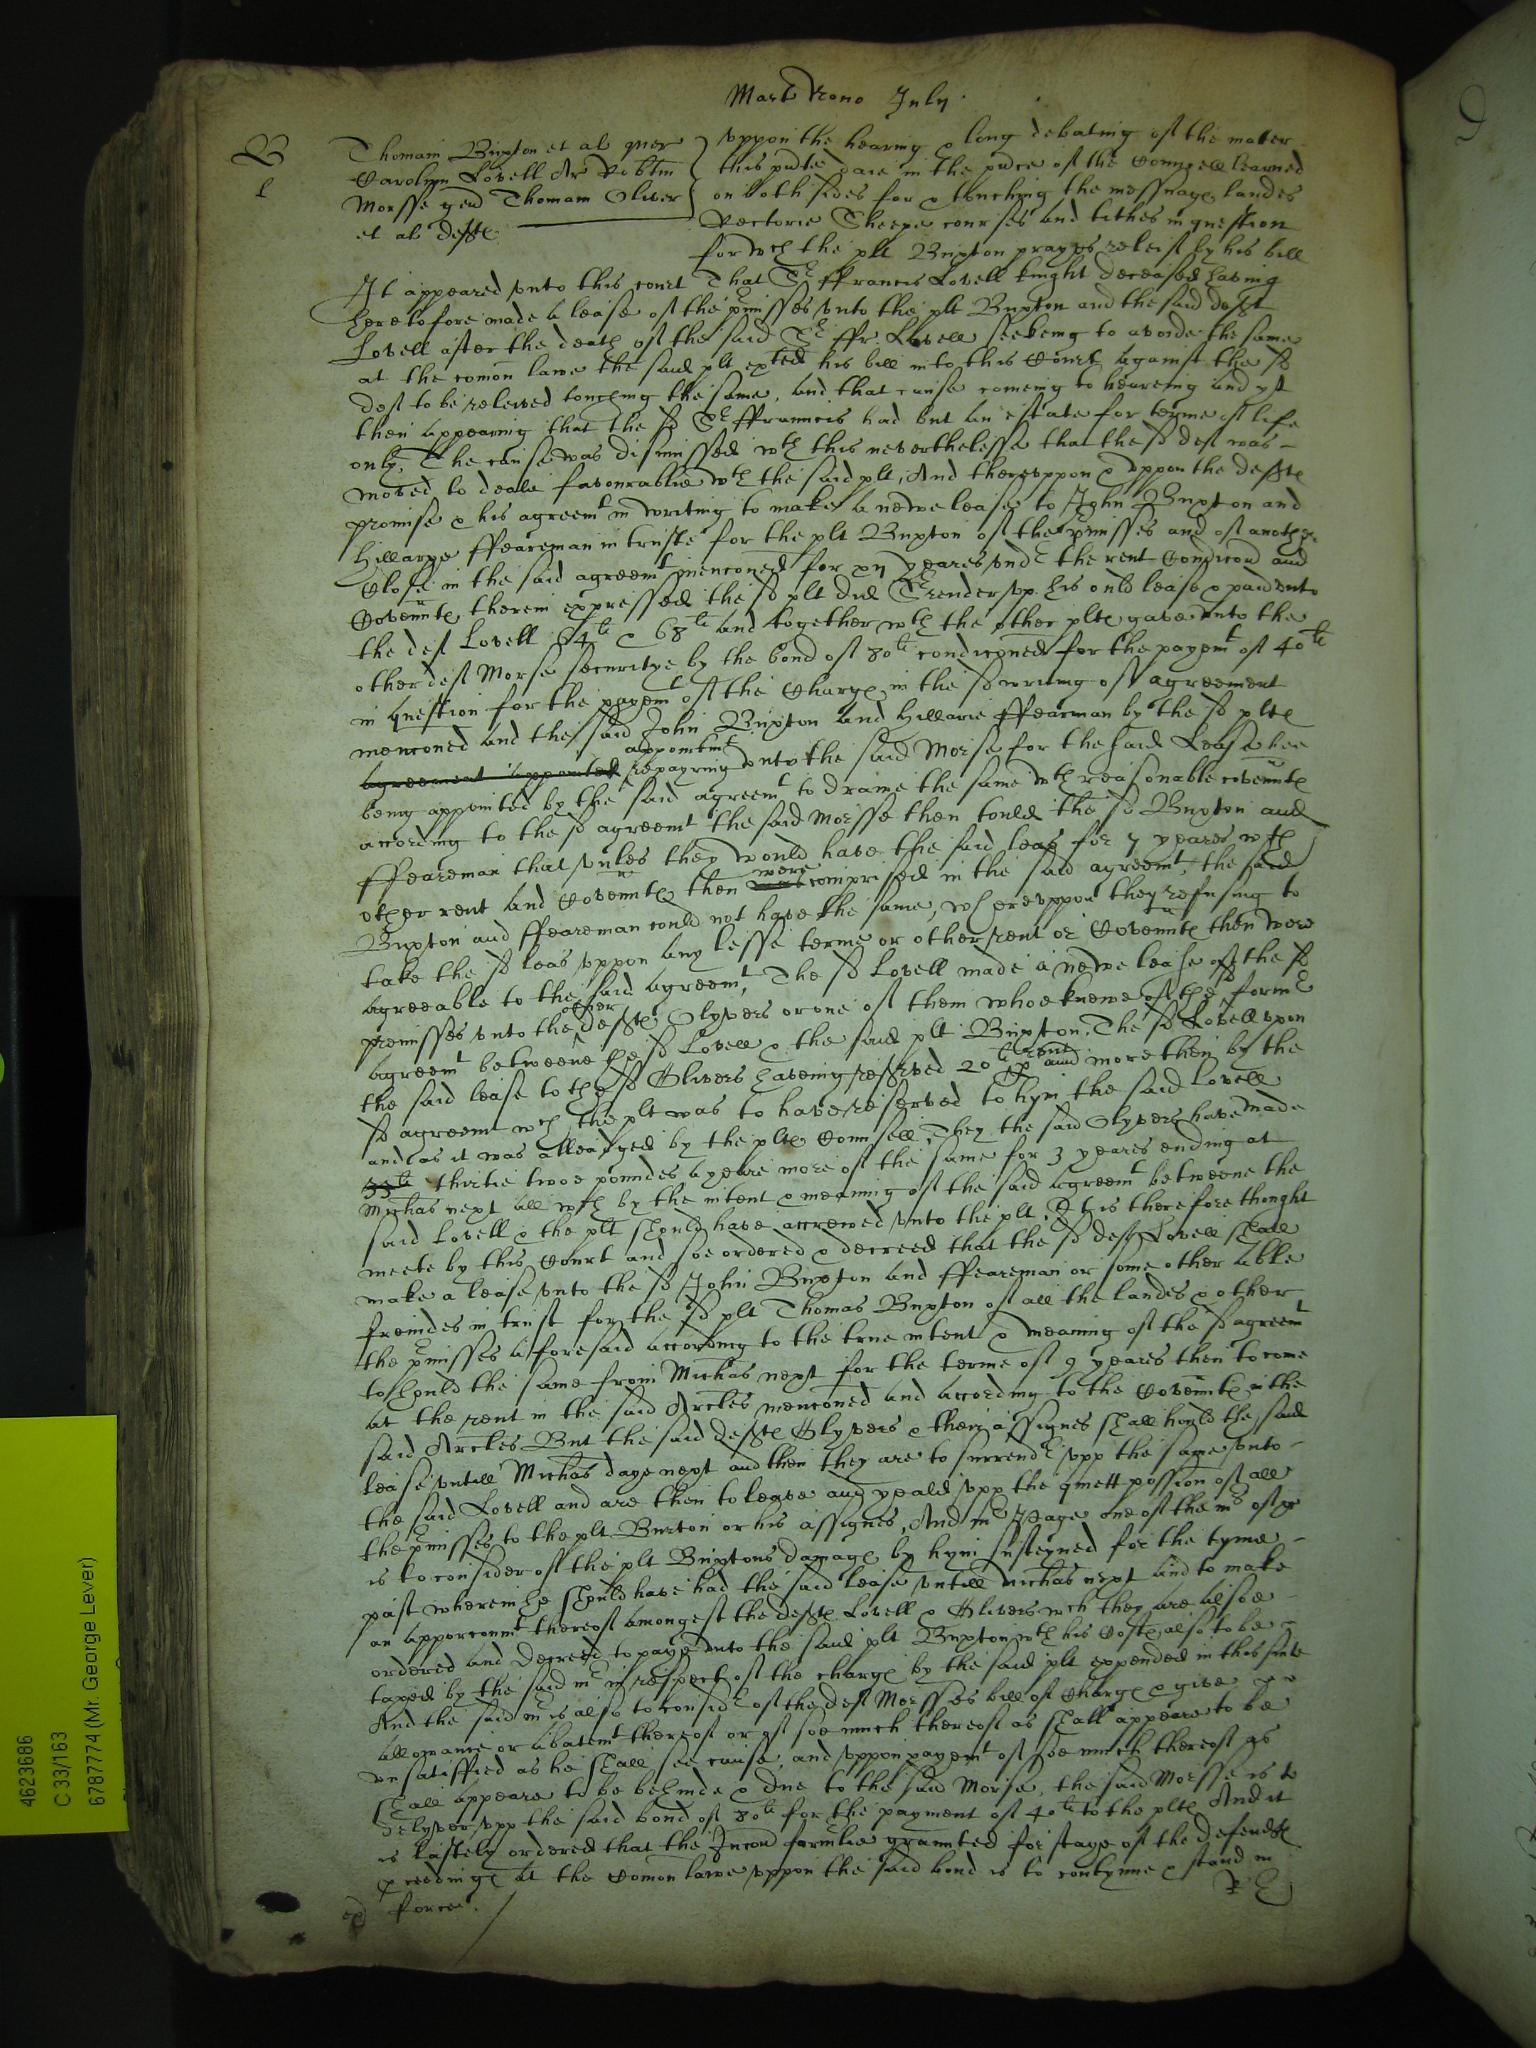 Mart Nono July
B
l
Thomam Buxton et al quer
Carolum Lovell Ar Robtm
Morsse gen Thomam Oliver
et al defte
Uppon the hearing & long debating of the matter
this pnte daie in the pnce of the Councell learned
on both sides for & touching the messuage landes
Rectorie Sheepe courses and tithes in question
for wch the plt Buxton prayes releif by his bill
It appeared unto this court That Sr ffrancis Lovell knight deceased having
heretofore made a lease of the pmisses unto the plt Buxton and the said deft
Lovell after the death of the said Sr ffr. Lovell seekeing to avoide the same
at the comon lawe the said plt exhted his bill into this Court against the sd
deft to be releived touching the same, and that cause comeing to heareing and yt
then appearing that the sd Sr ffrauncis had but an estate for terme of life
only, The cause was dismissed wth this neverthelesse that the sd deft was
moved to deale favourablie wth the said plt, And thereuppon & uppon the defte
promise & his agreemt in writing to make a newe lease to John Buxton and
Hillarye ffeareman in truste for the plt Buxton of the pmisses and of another
Close in the said agreemt menconed for xij yeares undr the rent Condicons and
Covennte therein expressed the sd plt did Srender upp his ould lease & paid unto
the deft Lovell 54li & 68li and together wth the other plte gave unto the
other deft Morse securitye by the bond of 80li condiconed for the payemt of 40li
in question for the payemt of the Charge in the sd writing of agreement
menconed and the said John Buxton and Hillarie ffearman by the sd plte
agreement appointed appointmt repayring unto the said Morse for the said Lease hee
being appointed by the said agreemt to drawe the same wth reasonable covennte
according to the sd agreemt the said Morsse then tould the sd Buxton and
ffeareman that unles they would have the said leas for 7 yeares wth
other rent and Covennte then was were comprised in the said agreemt, the said
Buxton and ffeareman could not have the same, whereuppon they refusing to
take the sd leas uppon any lesse terme or other rent or Covennte then were
agreeable to the said agreemt, The sd Lovell made a newe lease of the sd
premisses unto the other defte Olyvers or one of them whoe knewe of the sd formr
agreemt betweene the sd Lovell & the said plt Buxton, The sd Lovell upon
the said lease to the sd Olivers haveing reserved 20li rent p annu more then by the
sd agreemt wch the plt was to have reserved to hym the said Lovell
and as it was alleadged by the plte Counsell, They the said Olyvers have made
33li thirtie twoe poundes a yeare more of the same for 3 yeares ending at
Michas next all wch by the intent & meaning of the said agreemt betweene the
said Lovell & the plt should have accrewed unto the plt, It is therefore thought
meete by this Court and soe ordered & decreed that the sd deft Lovell shall
make a lease unto the sd John Buxton and ffeareman or some other able
freindes in trust for the sd plt Thomas Buxton of all the landes & other
the pmisses aforesaid according to the true intent & meaning of the sd agreemt
to hould the same from Michas next for the terme of 9 yeares then to come
at the rent in the said Arcles menconed and according to the Covennte in the
said Arcles But the said defte Olyvers & their assignes shall hould the said
lease untill Michas daye next and then they are to surrendr upp the same unto
the said Lovell and are then to leave and yeald upp the quiett possion of all
the pmisses to the plt Buxton or his assignes, And mr Page one of the mrs of ye
is to consider of the plt Buxtons damage by hym susteyned for the tyme
past wherein he should have had the said lease untill Michas next and to make
an apporconmt thereof amongest the defte Lovell & Olivers wch they are alsoe
ordered and decreed to paye unto the said plt Buxton wth his Coste also to be
taxed by the said mr in respect of the charge by the said plt expended in this suite
And the said mr is also to considr of the deft Morsses bill of Charge & give
allowance or abatemt thereof or of soe much thereof as shall appeare to be
unsatisfied as he shall see cause, and uppon payemt of soe much thereof as
shall appeare to be behinde & due to the said Morse, the said Morsse is to
delyver upp the said bond of 80li for the payment of 40li to the plte And it
is lastely ordered that the Iniuncon formlie graunted for staye of the defendte
pceedinge at the Comon lawe uppon the said bond is to contynue & stand in
force.
4623686
C 33/163
6787774 (Mr. George Lever)